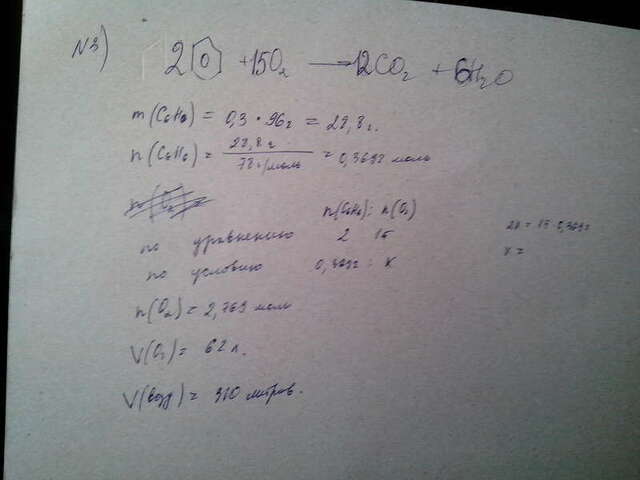 N3)
2 + 15O₂ → 12CO₂ + 6H₂O
m(C₆H₆) = 0,3 · 96г = 28,8г.
n(C₆H₆) = 28,8г / 78г/моль = 0,3692 моль
n(C₆H₆) : n(O₂)
по уравнению 2 15
по условию 0,3692 : x
2x = 15 · 0,3692
x =
n(O₂) = 2,769 моль
V(O₂) = 62 л.
V(возд) = 310 литров.